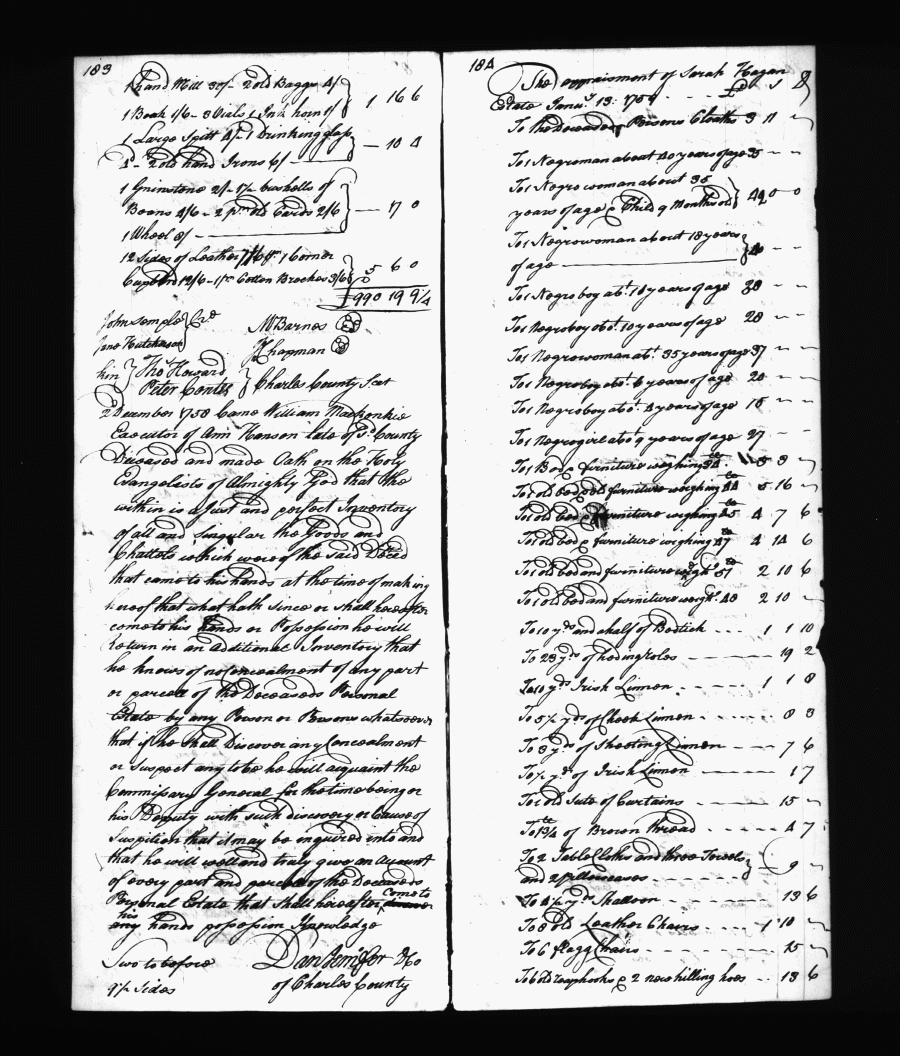 183
1 hand Mill 30/- 2 old Baggs 4/
1 Book 1/6 - 3 Vials 1 Ink horn 1/ 1 16 6
1 Large Spitt 4/- 1 Drinking glass
2 old hand Irons 6/ — 10 4
1 Grinstone 2/- 1½ bushells of
Beans 4/6 - 2 pr old Cards 2/6 — 17 0
1 Wheel 8/ —
12 Sides of Leather 1 Corner
Cupbord 12/6 - 1 pr Cotton Breeches 3/6 5 6 0
£990 19 9¼
John Semple Crd
Jane Hutchison
M Barnes
J Chapman
kin Thos Howard
Peter Contee Charles County Sct
2 December 1758 Came William Mackenkie
Executor of Ann Hanson late of sd County
Deceased and made Oath on the Holy
Evangelists of Almighty God that the
within is a Just and perfect Inventory
of all and Singular the Goods and
Chattels which were of the Said Deced
that came to his hands at the time of making
hereof that what hath Since or shall hereafter
come to his hands or Possession he will
return in an Aditional Inventory that
he knows of no concealment of any part
or parcel of the Deceaseds Personal
Estate by any Person or Persons whatsoever
that if he shall Discover any Concealment
or Suspect any to be he will acquaint the
Commissary General for the time being or
his Deputy with such discovery or Cause of
Suspition that it may be inquired into and
that he will well and truly give an Account
of every part and parcel of the Deceaseds
Personal Estate that shall hereafter Come to
his
any hands possession Knowledge
Swo to before
Dan Jenifer
9½ Sides
of Charles County
184
The appraisment of Sarah Hagan
Estate Janry 13 1759 £ S D
To the Deceaseds Persons Cloaths 3 11 -
To 1 Negro man about 40 years of age 35 - -
To 1 Negro woman about 35
years of age & Child 9 Months old 49 0 0
To 1 Negro woman about 18 years
of age — 40 - -
To 1 Negro boy abt years of age 38 - -
To 1 Negro boy abt 10 years of age 28 - -
To 1 Negro woman abt 35 years of age 37 - -
To 1 Negro boy abt 6 years of age 20 - -
To 1 Negro boy abt 4 years of age 18 - -
To 1 Negro girl abt 9 years of age 27 - -
To 1 Bed & furniture weighing 5 3 -
To 1 old bed & old furniture weighing 44 5 16 -
To 1 old bed & furniture weighing 45 4 7 6
To 1 old bed & furniture weighing 47 4 14 6
To 1 old bed and furniture weighg 57 2 10 6
To 1 old bed and furniture weighg 40 2 10 -
To 10 yds and a half of Bedtick 1 1 10
To 23 yds of 19 2
To 10 yds Irish Linnen 1 1 8
To 5½ yds of Check Linnen 8 3
To 3 yds of Sheeting Linnen 7 6
To ½ yd of Irish Linnen 1 7
To 1 old Sute of Curtains 15 -
To 1¾ of Brown thread 4 7
To 2 Table Cloths and three Towels
and 2 pillowcases 9 -
To 4½ yds Shalloon 13 6
To 8 old Leather Chairs 1 10 -
To 6 flagg Chairs 15 -
To 6 old reaphooks & 2 new hilling hoes 13 6